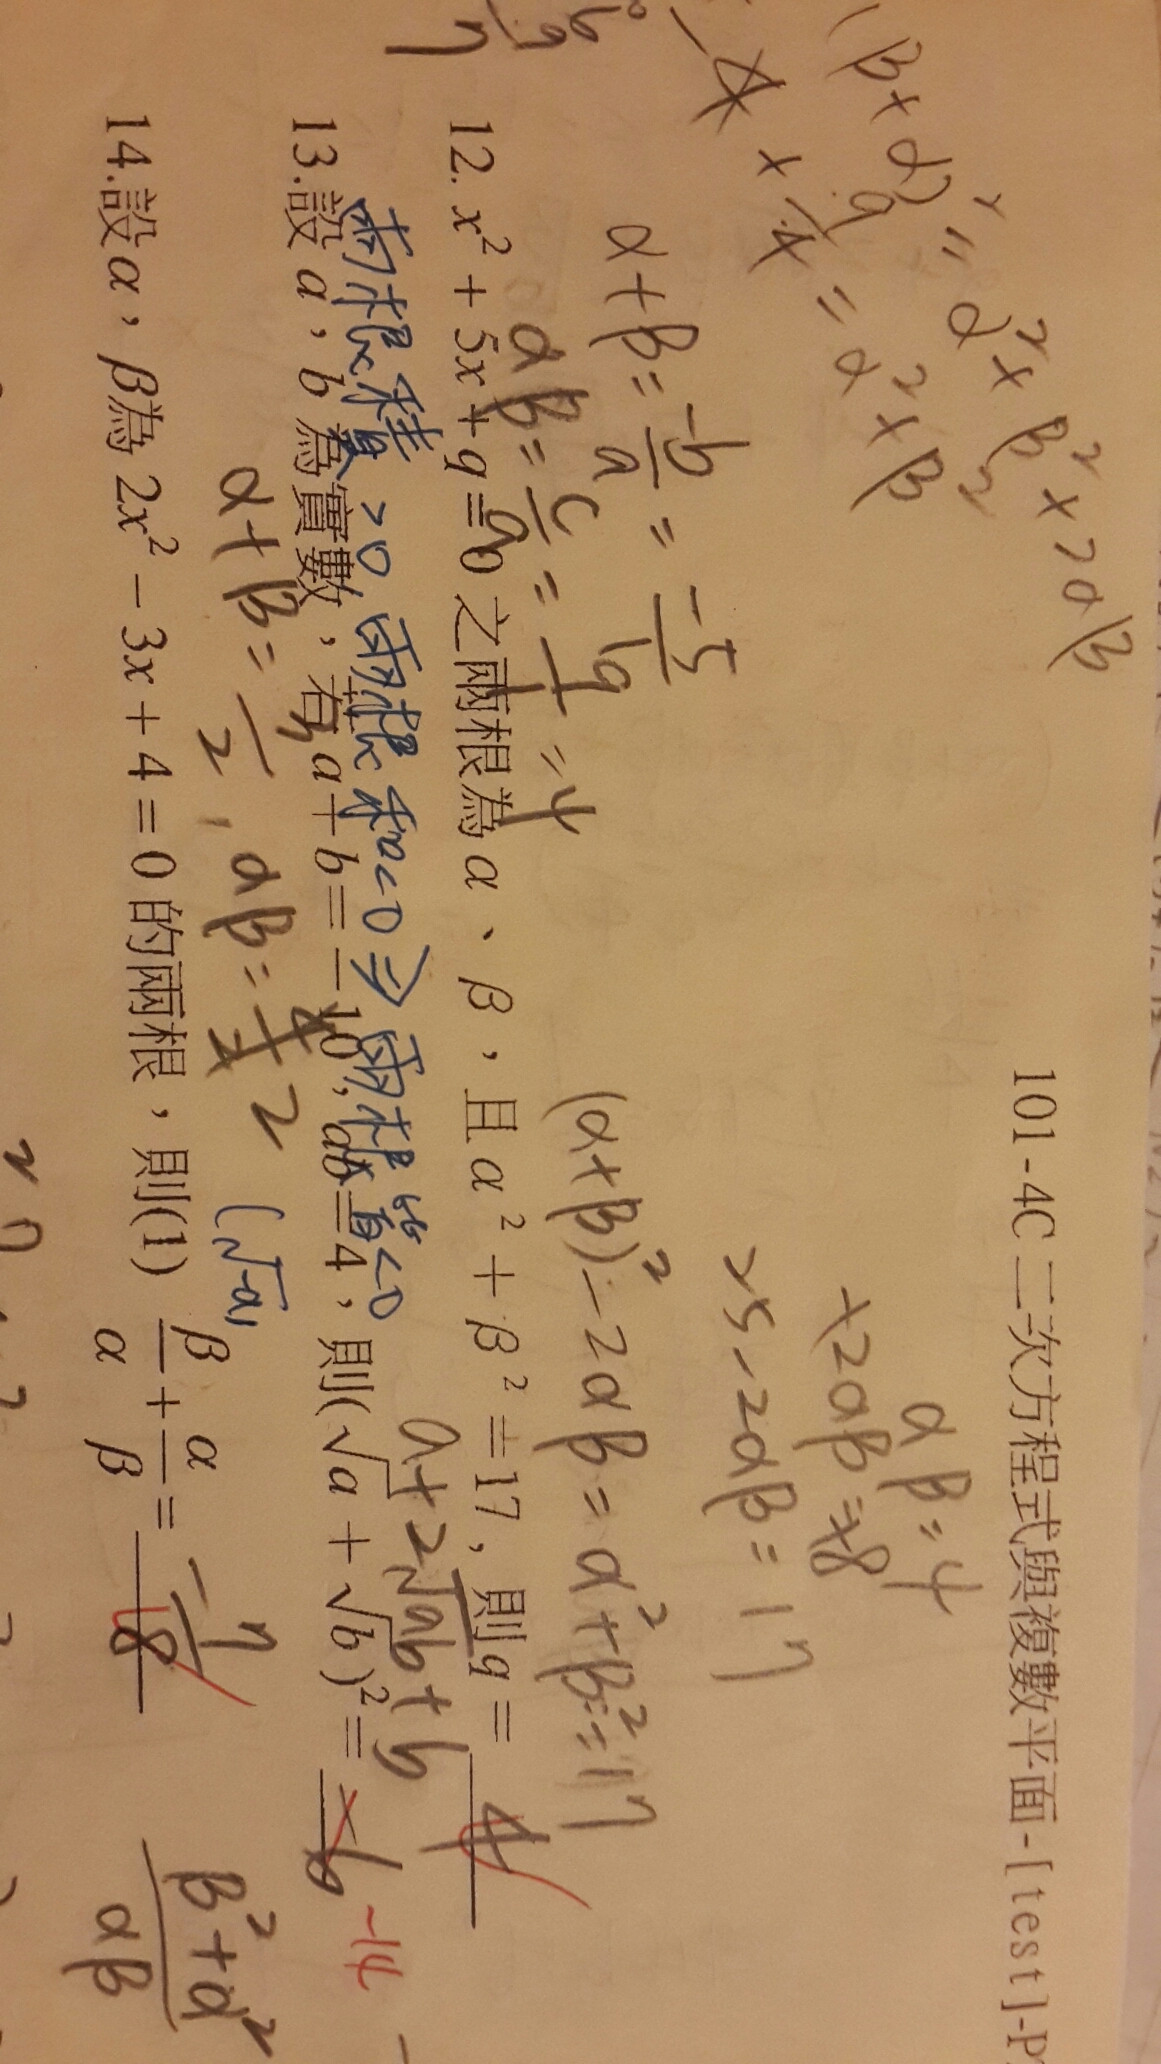 101-4C 二次方程式與複數平面-[test]-P
(β×α)² = α²×β²×2αβ
= α²×β²
αβ=4
+2αβ=+8
25-2αβ=17
α+β=-b/a=-5/1
αβ=c/a=q/1=4
(α+β)²-2αβ=α²+β²=17
12. x²+5x+q=0 之兩根為α、β,且α²+β²=17,則q= 4
兩根積 >0 兩根和<0 ⇒ 兩根皆<0
a+2√ab+b
13.設a,b為實數,若a+b=-10,ab=4,則(√a+√b)²= -6 -14
α+β=3/2, αβ=4/2 2
(√-a,
14.設α,β為2x²-3x+4=0的兩根,則(1) β/α+α/β= -7/8
β²+α²/αβ